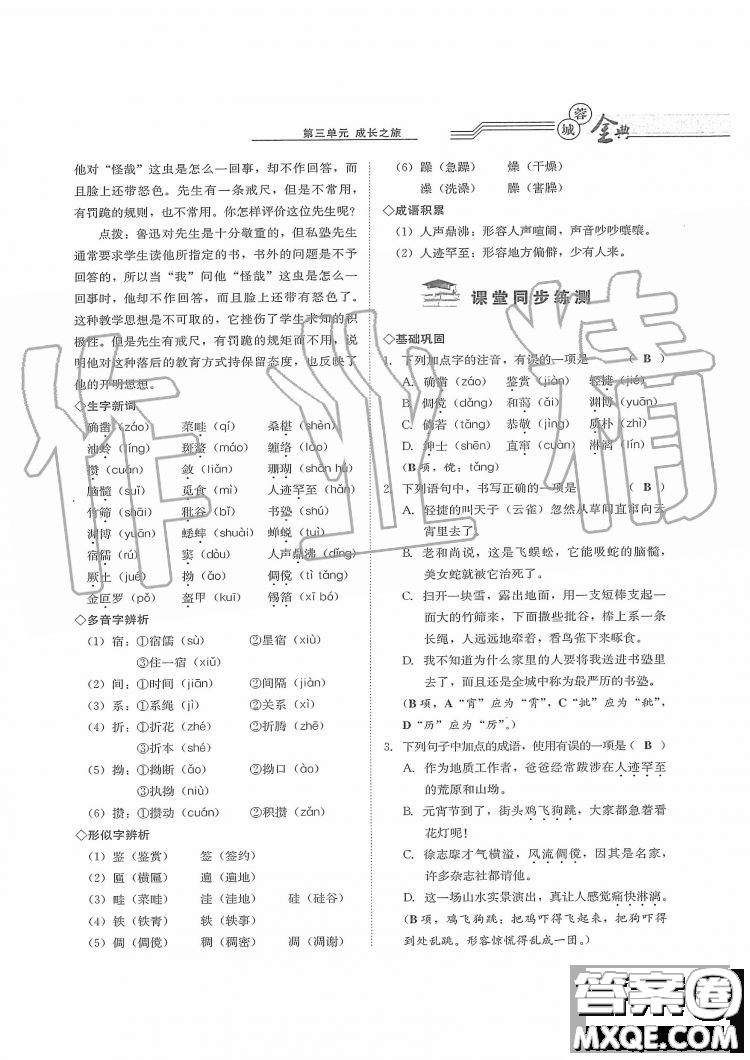 第三单元 成长之旅
蓉城
金典
他对“怪哉”这虫是怎么一回事，却不作回答，而
且脸上还带有怒色。先生有一条戒尺，但是不常用，
有罚跪的规则，也不常用。你怎样评价这位先生呢？
点拨：鲁迅对先生是十分敬重的，但私塾先生
通常要求学生读他所指定的书，书外的问题是不予
回答的，所以当“我”问他“怪哉”这虫是怎么一
回事时，他却不作回答，而且脸上还带有怒色了。
这种教学思想是不可取的，它挫伤了学生求知的积
极性。但是先生有戒尺，有罚跪的规矩而不用，说
明他对这种落后的教育方式持保留态度，也反映了
他的开明思想。
◇生字新词
确凿（záo） 菜畦（qí） 桑椹（shèn）
油蛉（líng） 斑蝥（máo） 缠络（luò）
攒（cuán） 敛（liǎn） 珊瑚（shān hú）
脑髓（suǐ） 觅食（mì） 人迹罕至（hǎn）
竹筛（shāi） 秕谷（bǐ） 书塾（shú）
渊博（yuān） 蟋蟀（shuài） 蝉蜕（tuì）
宿儒（rú） 窦（dòu） 人声鼎沸（dǐng）
厥土（jué） 拗（ǎo） 倜傥（tì tǎng）
金叵罗（pǒ） 盔甲（kuī） 锡箔（xī bó）
◇多音字辨析
（1）宿：①宿儒（sù） ②星宿（xiù）
③住一宿（xiǔ）
（2）间：①时间（jiān） ②间隔（jiàn）
（3）系：①系绳（jì） ②关系（xì）
（4）折：①折花（zhé） ②折腾（zhē）
③折本（shé）
（5）拗：①拗断（ǎo） ②拗口（ào）
③执拗（niù）
（6）攒：①攒动（cuán） ②积攒（zǎn）
◇形似字辨析
（1）鉴（鉴赏） 签（签约）
（2）匾（横匾） 遍（遍地）
（3）畦（菜畦） 洼（洼地） 硅（硅谷）
（4）铁（铁青） 轶（轶事）
（5）倜（倜傥） 稠（稠密） 凋（凋谢）
（6）躁（急躁） 燥（干燥）
澡（洗澡） 臊（害臊）
◇成语积累
（1）人声鼎沸：形容人声喧闹，声音吵吵嚷嚷。
（2）人迹罕至：形容地方偏僻，少有人来。
课堂同步练测
◇基础巩固
1. 下列加点字的注音，有误的一项是 （ B ）
A. 确凿（záo） 鉴赏（jiàn） 轻捷（jié）
B. 倜傥（dǎng） 和蔼（ǎi） 渊博（yuān）
C. 倘若（tǎng） 恭敬（gōng） 质朴（zhì）
D. 绅士（shēn） 直窜（cuàn） 淋漓（lí）
（B项，傥：tǎng）
2. 下列语句中，书写正确的一项是 （ B ）
A. 轻捷的叫天子（云雀）忽然从草间直窜向云
宵里去了。
B. 老和尚说，这是飞蜈蚣，它能吸蛇的脑髓，
美女蛇就被它治死了。
C. 扫开一块雪，露出地面，用一支短棒支起一
面大的竹筛来，下面撒些批谷，棒上系一条
长绳，人远远地牵着，看鸟雀下来啄食。
D. 我不知道为什么家里的人要将我送进书塾里
去了，而且还是全城中称为最严历的书塾。
（B项，A“宵”应为“霄”，C“批”应为“秕”，
D“历”应为“厉”。）
3. 下列句子中加点的成语，使用有误的一项是（ B ）
A. 作为地质工作者，爸爸经常跋涉在人迹罕至
的荒原和山坳。
B. 元宵节到了，街头鸡飞狗跳，大家都赶着看
花灯呢！
C. 徐志摩才气横溢，风流倜傥，因其是名家，
许多杂志社都请他。
D. 这一场山水实景演出，真让人感觉痛快淋漓。
（B项，鸡飞狗跳：把鸡吓得飞起来，把狗吓得
到处乱跳。形容惊慌得乱成一团。）
作业精
答案圈
MXQE.COM